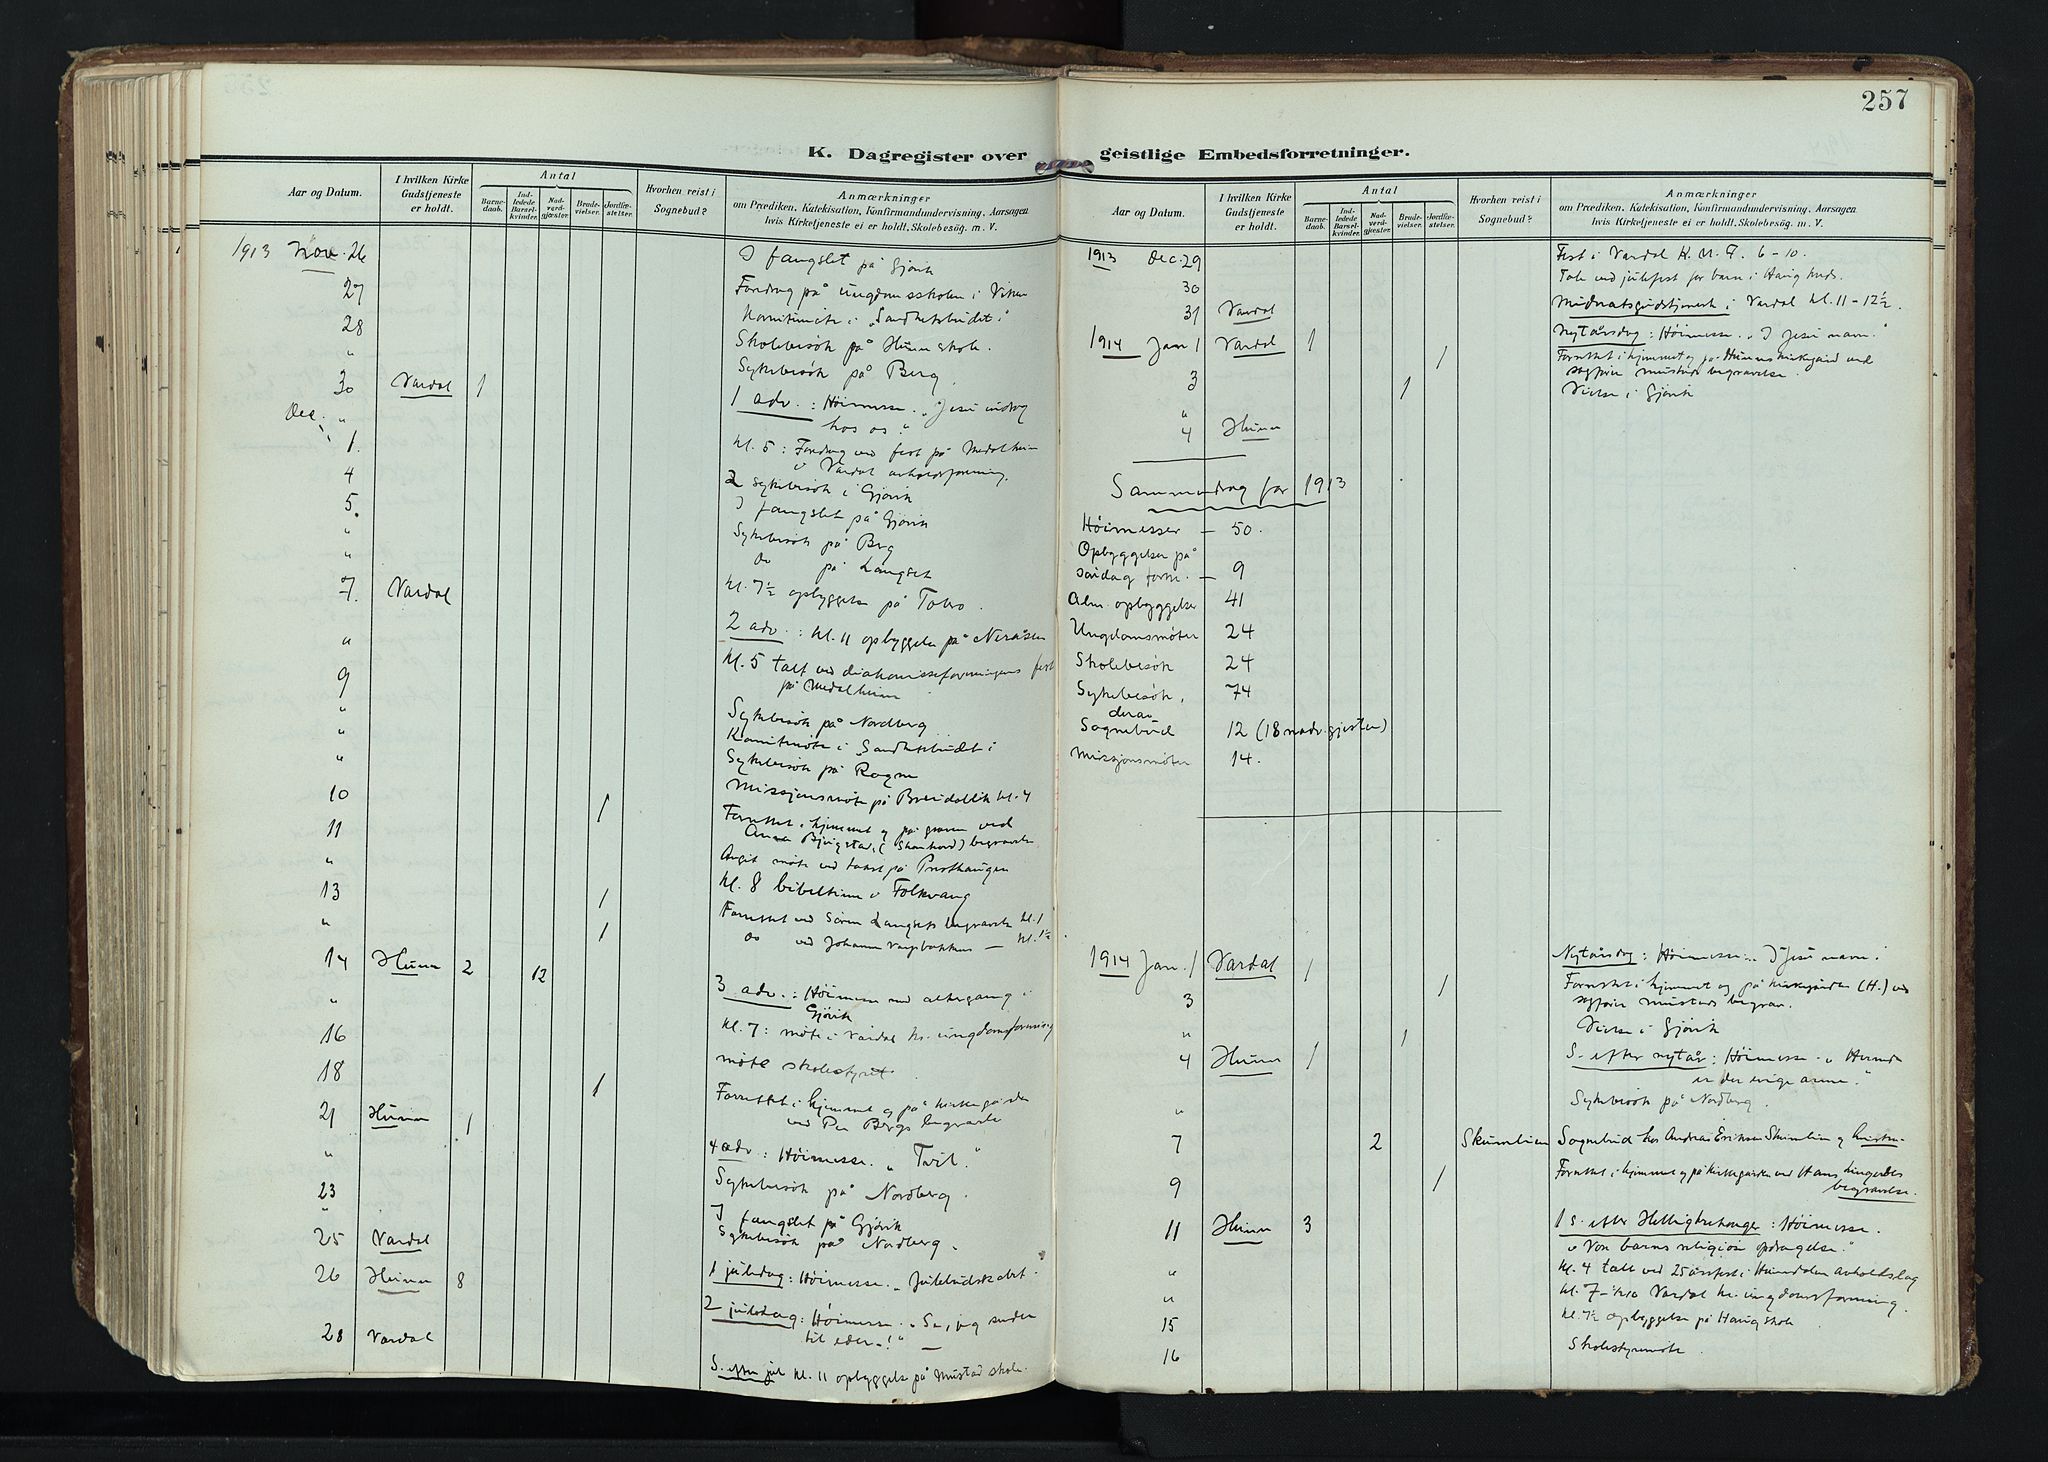 257
K. Dagregister over geistlige Embedsforretninger.
Aar og Datum.
I hvilken Kirke Gudstjeneste er holdt.
Antal
Barne-daab.
Ind-ledede Barsel-kvinder.
Nad-verd-gjæster.
Brude-vielser.
Jordfæ-stelser.
Hvorhen reist i Sognebud?
Anmærkninger
om Prædiken. Katekisation, Konfirmandundervisning. Aarsagen,
hvis Kirketjeneste ei er holdt. Skolebesög. m. V.
1913 Nov. 26 I fængslet på Gjøvik
27 Foredrag på ungdomsskolen i Viken
28 Komitemøte i „Sandhetsbudet".
" Skolebesøk på Hunn skole.
" Sykebesøk på Berg.
30 Vardal 1 1 adv.: Høimesse. „Jesu indtog
hos os."
" kl. 5: Foredrag ved fest på Medalheim
i Vardal avholdsforening.
Dec. 1. 2 sykebesøk i Gjøvik
4 I fængslet på Gjøvik
5. Sykebesøk på Berg
" do på Langset
" kl. 7½ opbyggelse på Tobro.
7. Vardal 2 adv.: kl. 11 opbyggelse på Neråsen
" kl. 5 talt ved diakonisseforeningens fest
på Medalheim
9 Sykebesøk på Nordberg
" Komitemøte i „Sandhetsbudet"
" Sykebesøk på Rogne
" Missjonsmøte på Breidablik kl. 4
10 1 Forrettet i hjemmet og på graven ved
Anna begravelse
11 møte ved takst på Presthaugen
" kl. 8 bibeltime i Folkvang
13 1 Forrettet ved Søren Langsets begravelse kl. 1
" 1 do ved Johanne — kl. 1½
14 Hunn 2 12 3 adv.: Høimesse med altergang i
Gjøvik
" kl. 7: møte i Vardal kr. ungdomsforening
16 møte skolestyret.
18 1 Forrettet i hjemmet og på kirkegården
ved Per Bergs begravelse
21 Hunn 1 4 adv: Høimesse. „Tvil."
" Sykebesøk på Nordberg.
23 I fængslet på Gjøvik
" Sykebesøk på Nordberg.
25 Vardal 1 juledag: Høimesse. „Julebudskabet."
26 Hunn 8 2 juledag: Høimesse. „Se, jeg sender
til eder —!"
28 Vardal S. efter jul kl. 11 opbyggelse på Mustad skole.
Aar og Datum.
I hvilken Kirke Gudstjeneste er holdt.
Antal
Barne-daab.
Ind-ledede Barsel-kvinder.
Nad-verd-gjæster.
Brude-vielser.
Jordfæ-stelser.
Hvorhen reist i Sognebud?
Anmærkninger
om Prædiken. Katekisation, Konfirmandundervisning. Aarsagen
hvis Kirketjeneste ei er holdt. Skolebesög. m. V.
1913 Dec. 29 Fest i Vardal K. U. F. 6 – 10.
30 Tale ved julefest for barn i Haug
31 Vardal Midnatsgudstjeneste i Vardal kl. 11 – 12½.
1914 Jan 1 Vardal 1 Nytårsdag: Høimesse. „I Jesu navn."
3 1 Forrettet i hjemmet og på Hunns kirkegård ved
Mustads begravelse.
" 1 Vielse i Gjøvik
4 Hunn
Sammendrag for 1913
Høimesser — 50.
Opbyggelser på
søndag form. — 9
Alm. opbyggelser 41
Ungdomsmøter 24
Skolebesøk 24
Sykebesøk, 74
derav
Sognebud 12 (18 nadv.gjester)
Missjonsmøter 14.
1914 Jan. 1 Vardal 1 Nytårsdag: Høimesse: „I Jesu navn."
3 1 Forrettet i hjemmet og på kirkegården (H.) ved
Mustads begrav.
" 1 Vielse i Gjøvik
4 Hunn 1 S. efter nytår: Høimesse. „Herunder
er de evige arme."
" Sykebesøk på Nordberg.
7 2 Skumlien Sognebud hos Andreas Eriksen Skumlien og hustru
9 1 Forrettet i hjemmet og på kirkegården ved Hans
begravelse.
11 Hunn 3 1 s. efter Hellig 3 konger: Høimesse.
„Vore barns religiøse opdragelse."
" kl. 4 talt ved 25 årsfest i Hunndalen avholdslag
" kl. 7 – ½10 Vardal kr. ungdomsforening.
15 kl. 7½ opbyggelse på Haug skole
16 Skolestyremøte.